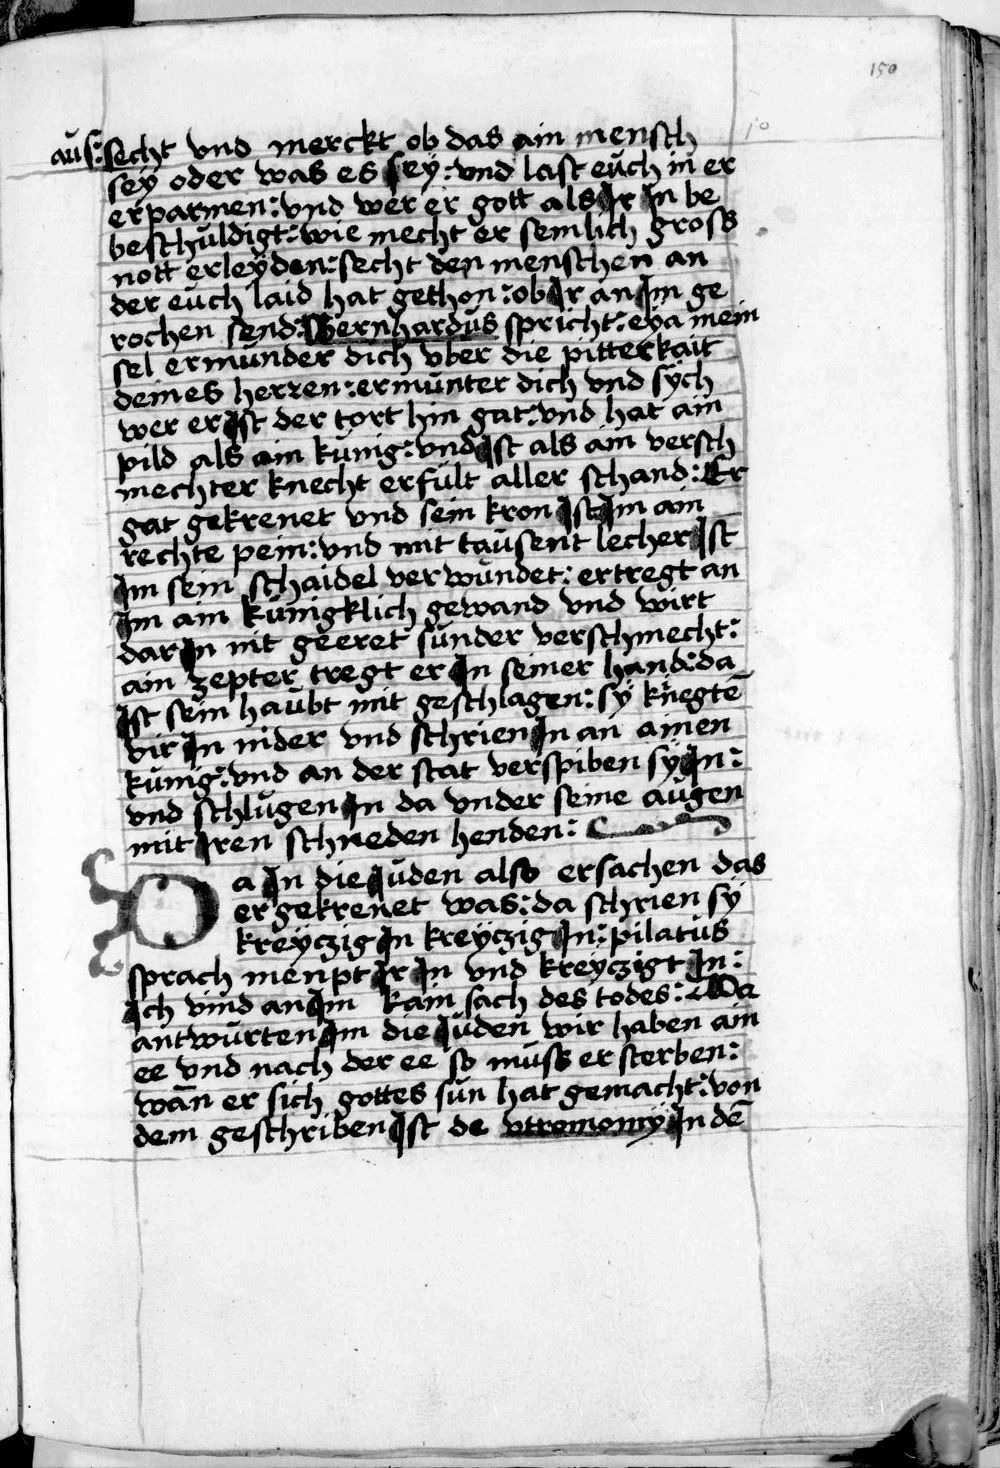 150
aus: secht vnd merckt ob das ain mensch
seÿ oder was es seÿ: vnd last euch in er
erparmen: vnd wer er gott als Ir In be
beschuldigt: wie mecht er semlich gross
nott erleÿden: secht den menschen an
der euch laid hat gethon: ob Ir an Im ge
rochen send: Bernhardus spricht: eya mein
sel ermunder dich vber die pitterkait
deines herzen: ermunter dich vnd sÿch
wer er Ist der tort hin gat: vnd hat ain
pild als ain kunig: vnd Ist als ain versch
mechter knecht erfult aller schand: Er
gat gekrenet vnd sein kron Ist Im ain
rechte pein: vnd mit tausent lecher Ist
Im sein schaidel verwundet: er tregt an
Im ain kunigklich gewand vnd wirt
dar In nit geeret sunder verschmecht:
ain zepter tregt er In seiner hand: da
Ist sein haubt mit geschlagen: sy knegtē
vir In nider vnd schrien In an ainen
kunig: vnd an der stat verspiben sÿ In:
vnd schlugen In da vnder seine augen
mit Iren schneden henden:
Da In die Iuden also ersachen das
er gekrenet was: da schrien sÿ
kreÿczig In kreÿczig In: pilatus
sprach menpt Ir In vnd kreÿczigt In:
Ich vind an Im kain sach des todes: Da
antwurten Im die Iuden wir haben ain
ee vnd nach der ee so muss er sterben:
wan̄ er sich gottes sun hat gemacht: von
dem geschriben Ist de vtromomÿ In dē